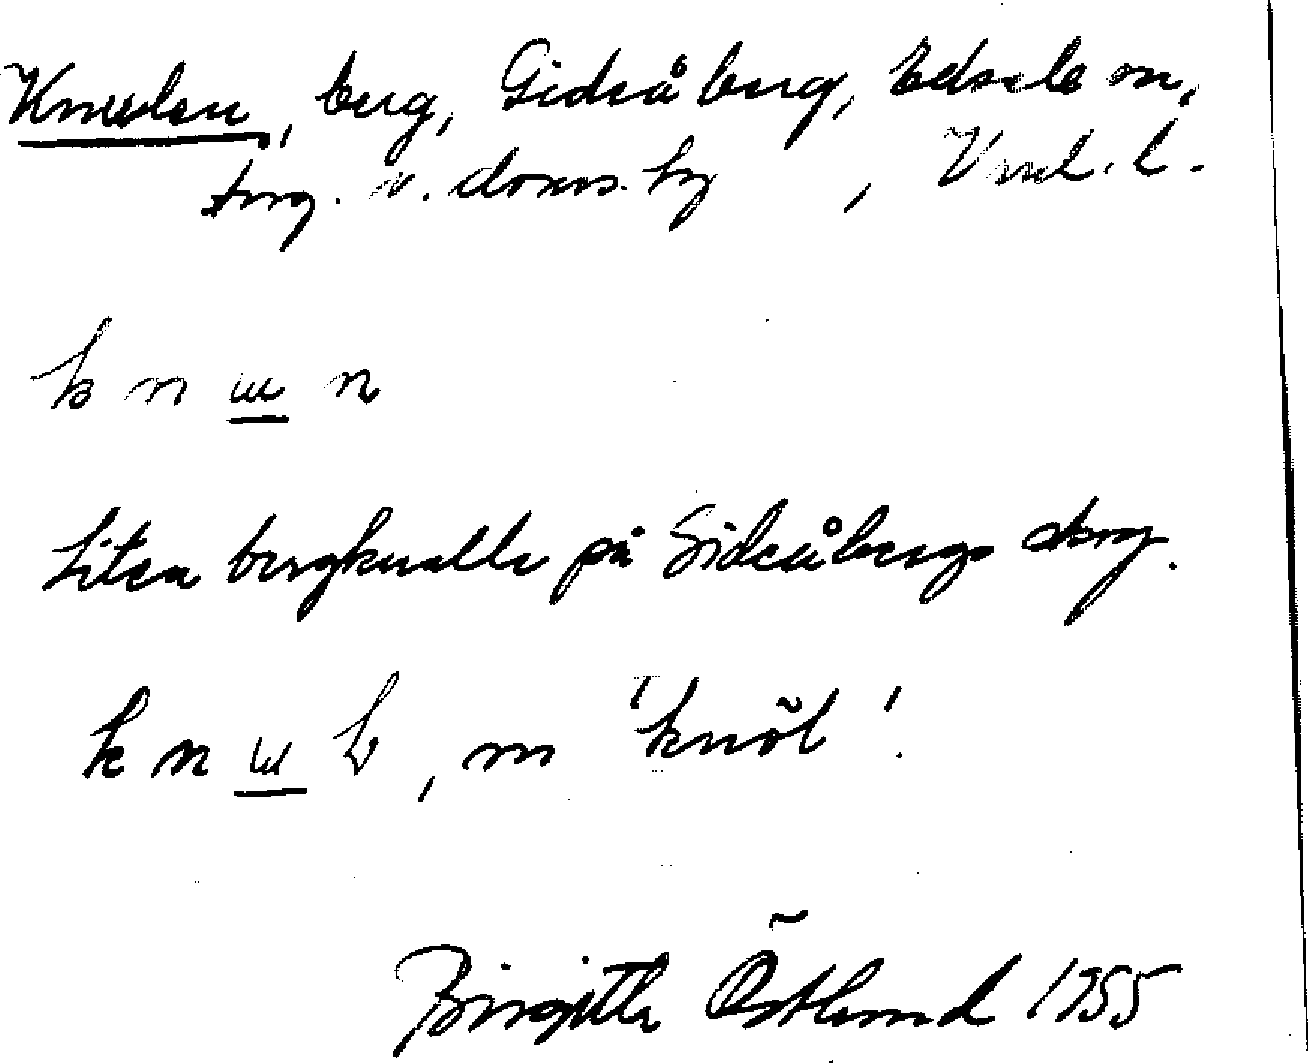 Knulen, berg, Gideåberg, Edsele sn,
Ång. v. doms. hg, Vnl. l.
k n ɯ n
Liten bergknalle på Gideåbergs skog.
k n ɯ l, m 'knöl'.
Birgitta Östlund 1955